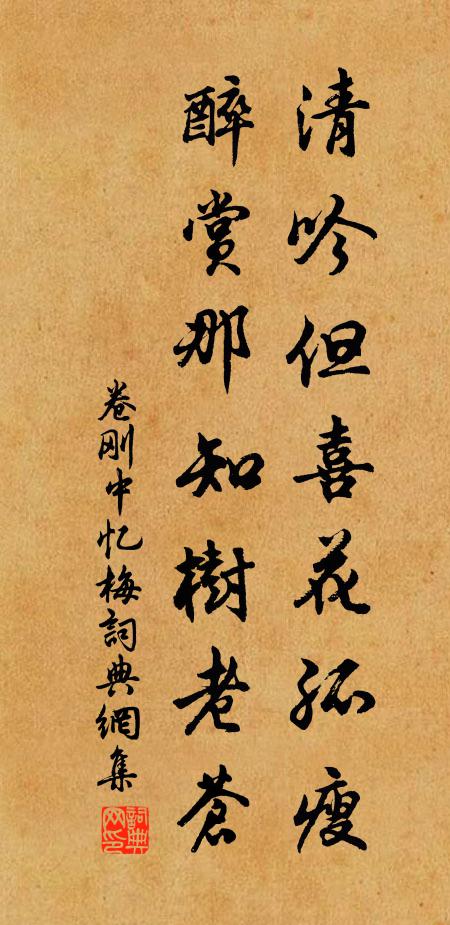 清吟但喜花孤瘦
醉赏那知樹老苍
卷刚中忆梅詞典網集
詞典网印